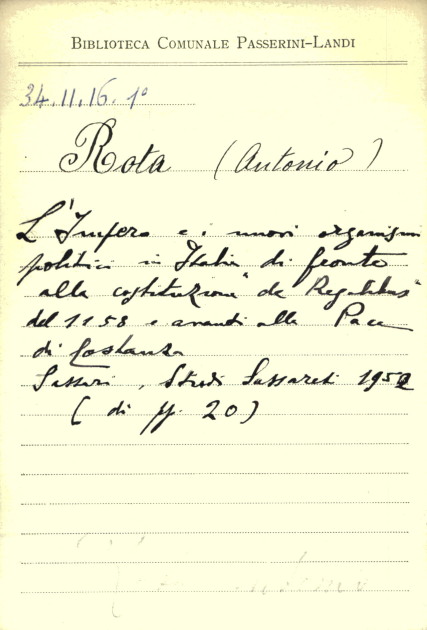 BIBLIOTECA COMUNALE PASSERINI-LANDI
34.II.16.1º
Rota (Antonio)
L'Impero e i nuovi organismi
politici in Italia di fronte
alla costituzione "de Regalibus"
del 1158 e avanti alla Pace
di Costanza
Sassari, Studi Sassaresi 1952
( di pp. 20)